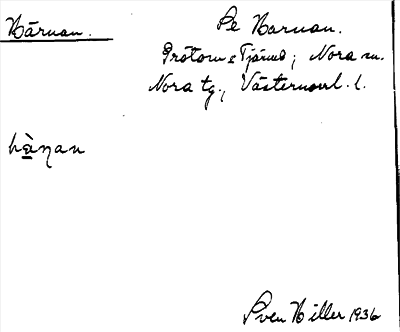 Bärnan.
Se Barnan.
Prötorn o Tjärned, Nora sn.
Nora tg., Västernorrl. l.
bàṇan
Sven Hiller 1936